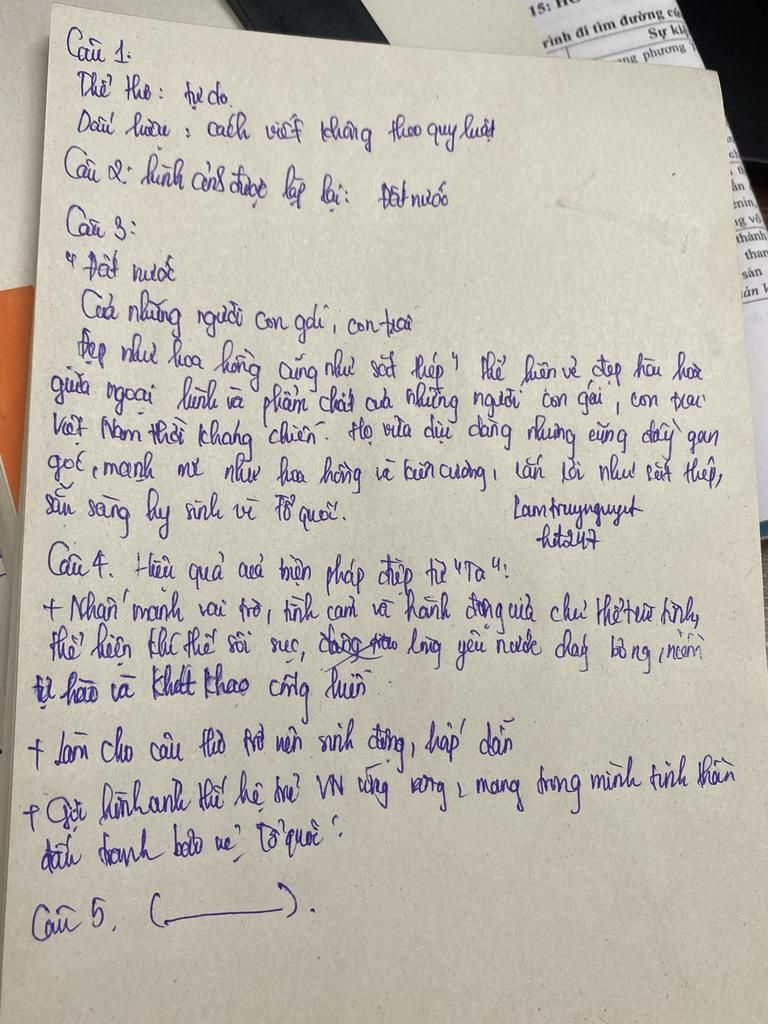 15: HO
rình đi tìm đường cứ
Sự kiệ
ang phương T
Câu 1:
Thể thơ: tự do.
Dấu hiệu : cách viết không theo quy luật
Câu 2: hình ảnh được lặp lại: Đất nước
Câu 3:
"Đất nước
Của những người con gái, con trai
Đẹp như hoa hồng cứng như sắt thép" thể hiện vẻ đẹp hài hoà
giữa ngoại hình và phẩm chất của những người con gái, con trai
Việt Nam thời kháng chiến. Họ vừa dịu dàng nhưng cũng đầy gan
góc, mạnh mẽ như hoa hồng và kiên cường, rắn rỏi như sắt thép,
sẵn sàng hy sinh vì Tổ quốc.
Lamtruynguyet
hot247
Câu 4. Hiệu quả của biện pháp điệp từ "Ta":
+ Nhấn mạnh vai trò, tình cảm và hành động của chủ thể trữ tình,
thể hiện khí thế sôi sục, lòng yêu nước cháy bỏng, niềm
tự hào và khát khao cống hiến.
+ Làm cho câu thơ trở nên sinh động, hấp dẫn
+ Gợi hình ảnh thế hệ trẻ VN, mang trong mình tinh thần
đấu tranh bảo vệ Tổ quốc.
Câu 5. (———).